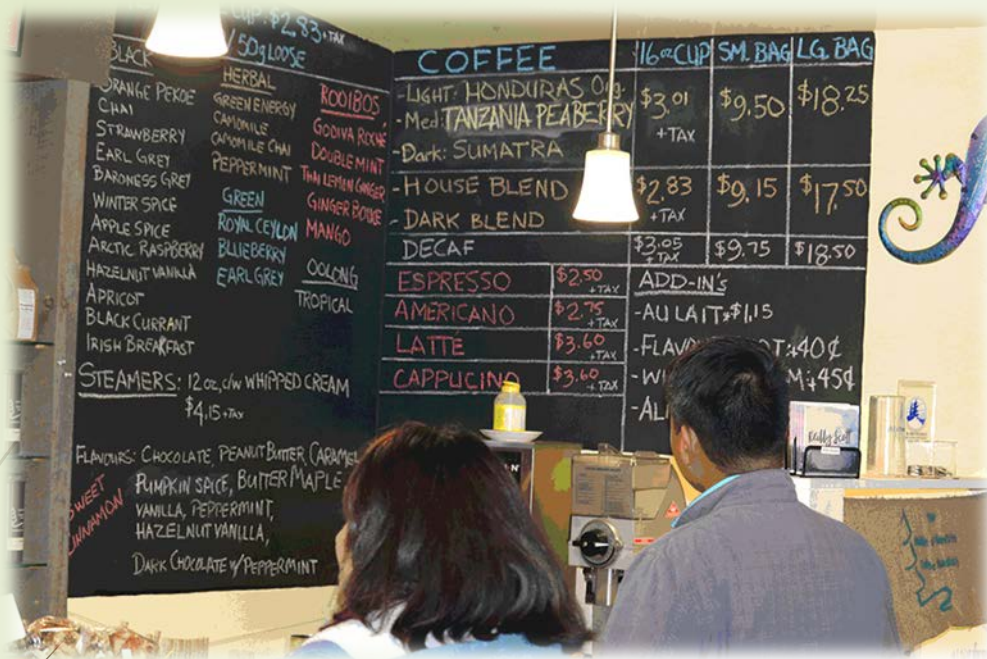 CUP: $2.83+TAX
/50g LOOSE
BLACK
ORANGE PEKOE
CHAI
STRAWBERRY
EARL GREY
BARONESS GREY
WINTER SPICE
APPLE SPICE
ARCTIC RASPBERRY
HAZELNUT VANILLA
APRICOT
BLACK CURRANT
IRISH BREAKFAST
HERBAL
GREEN ENERGY
CAMOMILE
CAMOMILE CHAI
PEPPERMINT
GREEN
ROYAL CEYLON
BLUEBERRY
EARL GREY
ROOIBOS
GODIVA ROCHE
DOUBLE MINT
THAI LEMON GINGER
GINGER BOUKE
MANGO
OOLONG
TROPICAL
STEAMERS: 12 oz, c/w WHIPPED CREAM
$4.15+TAX
FLAVOURS: CHOCOLATE, PEANUT BUTTER, CARAMEL
PUMPKIN SPICE, BUTTER MAPLE
VANILLA, PEPPERMINT,
HAZELNUT VANILLA,
DARK CHOCOLATE w/ PEPPERMINT
SWEET
CINNAMON
COFFEE 16oz CUP SM. BAG LG. BAG
-LIGHT: HONDURAS Org.
-Med: TANZANIA PEABERRY
-Dark: SUMATRA
$3.01 +TAX $9.50 $18.25
-HOUSE BLEND
-DARK BLEND
$2.83 +TAX $9.15 $17.50
DECAF $3.05 +TAX $9.75 $18.50
ESPRESSO $2.50 +TAX
AMERICANO $2.75 +TAX
LATTÉ $3.60 +TAX
CAPPUCINO $3.60 +TAX
ADD-IN's
-AU LAIT+$1.15
-FLAV OT:+40¢
-W M:+45¢
-AL